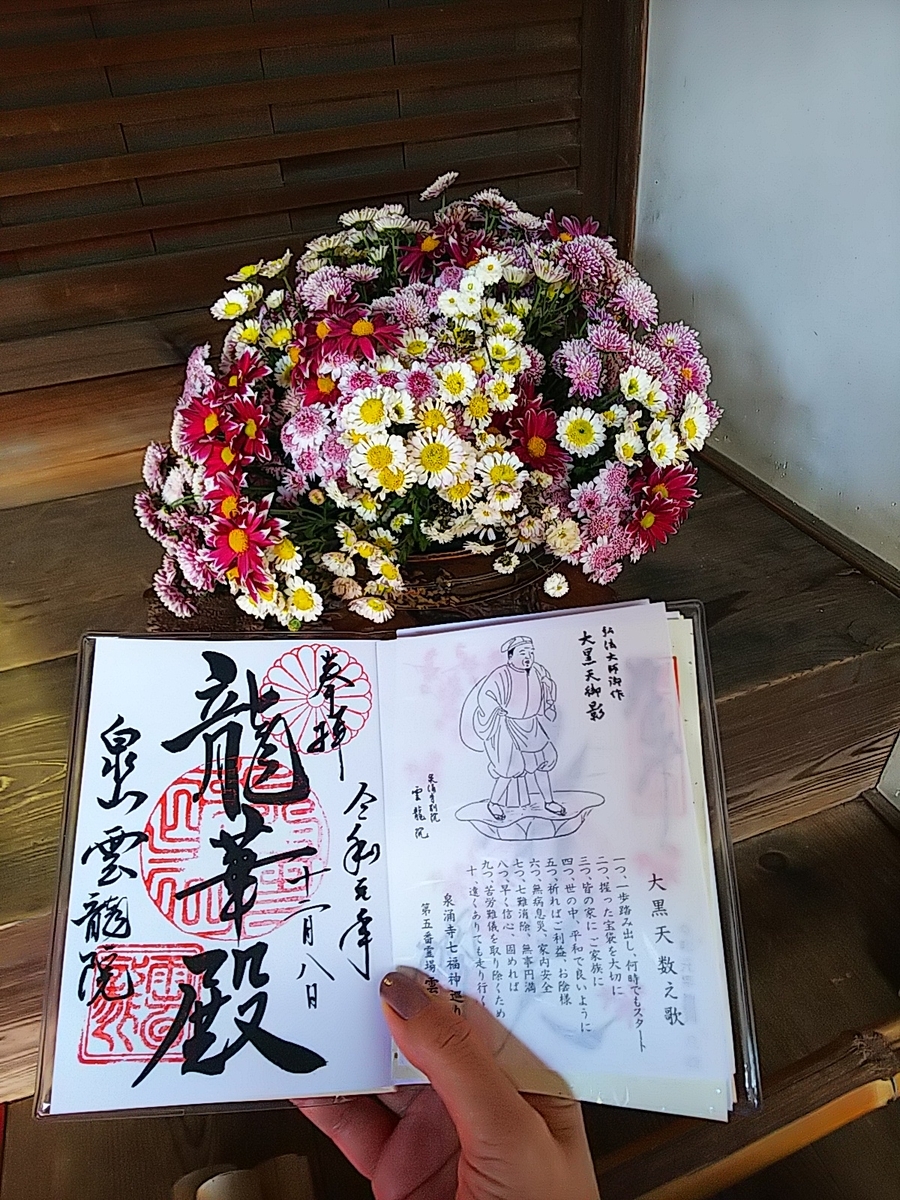 奉拝
令和元年
十一月八日
龍華殿
泉山雲龍院
弘法大師御作
大黒天御影
泉涌寺別院
雲龍院
大黒天数え歌
一つ、一歩踏み出し、何時でもスタート
二つ、握った宝袋を大切に
三つ、皆の家に ご家族に
四つ、世の中、平和で良いように
五つ、祈ればご利益、お陰様
六つ、無病息災、家内安全
七つ、七難消除、無事円満
八つ、早く信心、固めれば
九つ、苦労難儀を取り除くため
十 遠くありても走り行く
泉涌寺七福神巡り
第五番霊場 雲